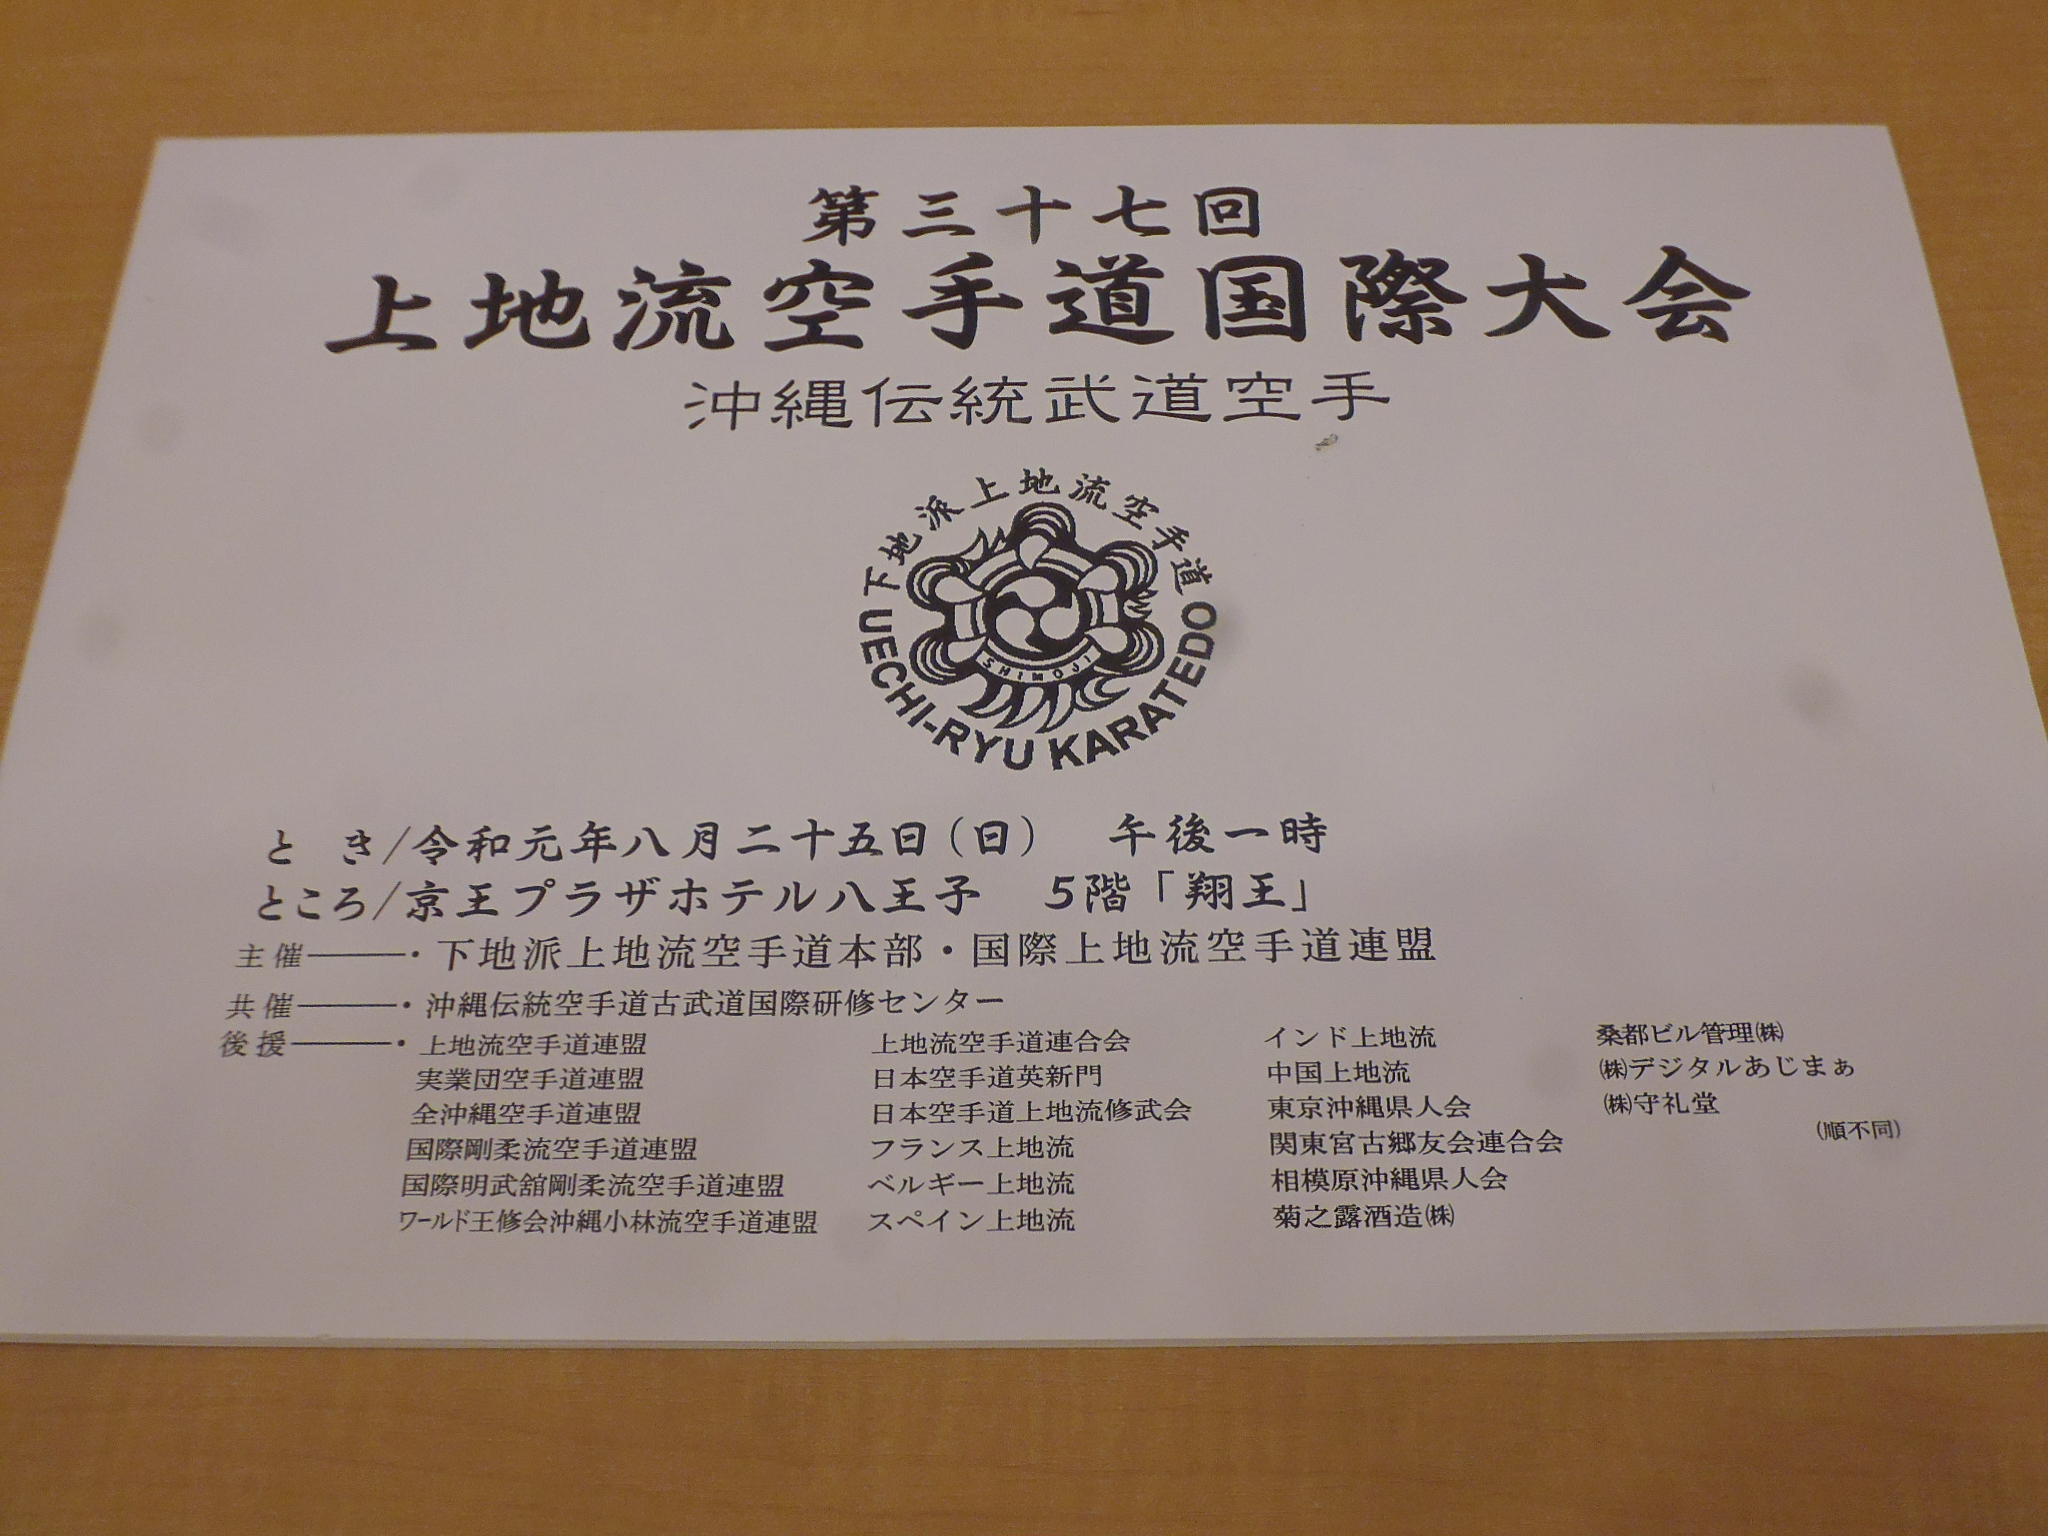 第三十七回
上地流空手道国際大会
沖縄伝統武道空手
下地派上地流空手道
SHIMOJI
UECHI-RYU KARATEDO
とき/令和元年八月二十五日(日) 午後一時
ところ/京王プラザホテル八王子 5階「翔王」
主催――・下地派上地流空手道本部・国際上地流空手道連盟
共催――・沖縄伝統空手道古武道国際研修センター
後援――・上地流空手道連盟 上地流空手道連合会 インド上地流 桑都ビル管理㈱
実業団空手道連盟 日本空手道英新門 中国上地流 ㈱デジタルあじまぁ
全沖縄空手道連盟 日本空手道上地流修武会 東京沖縄県人会 ㈱守礼堂
国際剛柔流空手道連盟 フランス上地流 関東宮古郷友会連合会 (順不同)
国際明武舘剛柔流空手道連盟 ベルギー上地流 相模原沖縄県人会
ワールド王修会沖縄小林流空手道連盟 スペイン上地流 菊之露酒造㈱